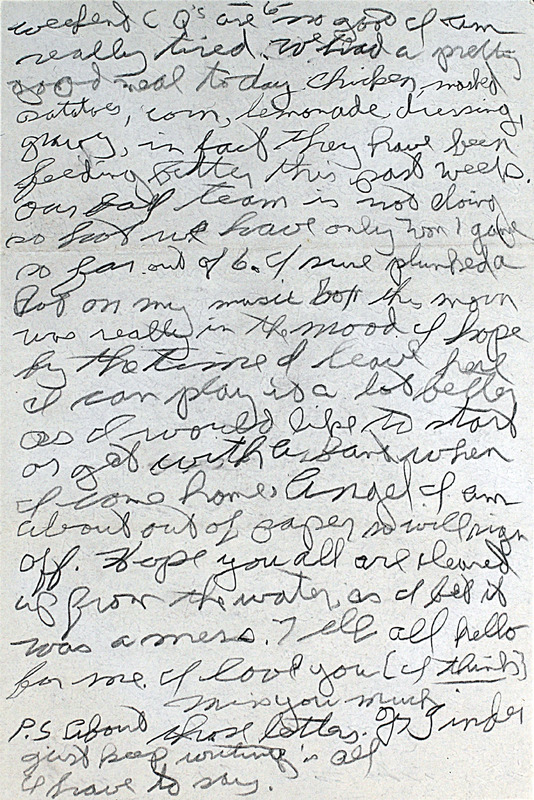 weekend C Q's are so good I am
really tired. We had a pretty
good meal today chicken, mashed
potatoes, corn, lemonade, dressing,
gravy, in fact they have been
feeding better this past week.
our ball team is not doing
so hot we have only won 1 game
so far out of 6. I sure plunked a
lot on my music box this morn
was really in the mood. I hope
by the time I leave here
I can play it a lot better
as I would like to start
or get with a band when
I come home. Angel I am
about out of paper so will sign
off. Hope you all are cleaned
up from the water, as I bet it
was a mess. Tell all hello
for me. I love you [I think]
miss you much
P.S. About those letters.
just keep writing is all
I have to say.